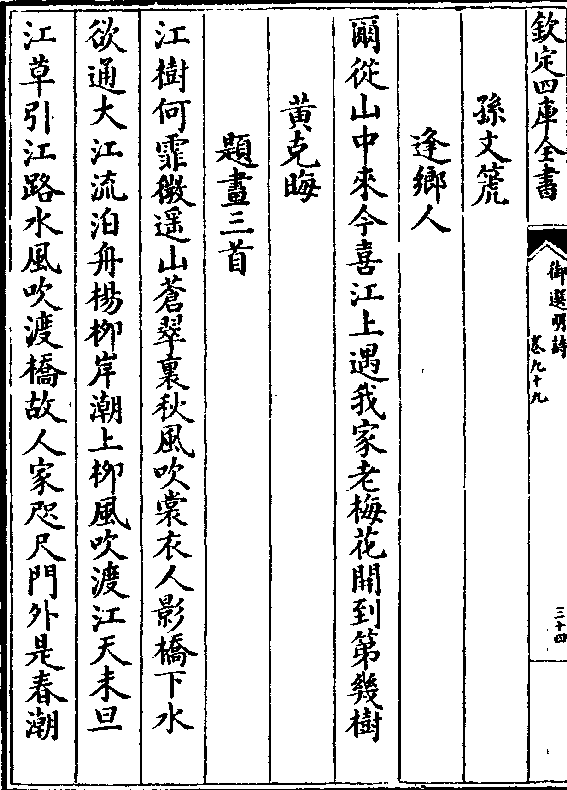 欽定四庫全書
御選明詩
卷九十九
三十四
孫文箎
逢鄉人
爾從山中來今喜江上遇我家老梅花開到第幾樹
黄克晦
題畫三首
江樹何霏微遥山蒼翠裏秋風吹裳衣人影橋下水
欲通大江流泊舟楊栁岸潮上栁風吹渡江天未旦
江草引江路水風吹渡橋故人家咫尺門外是春潮